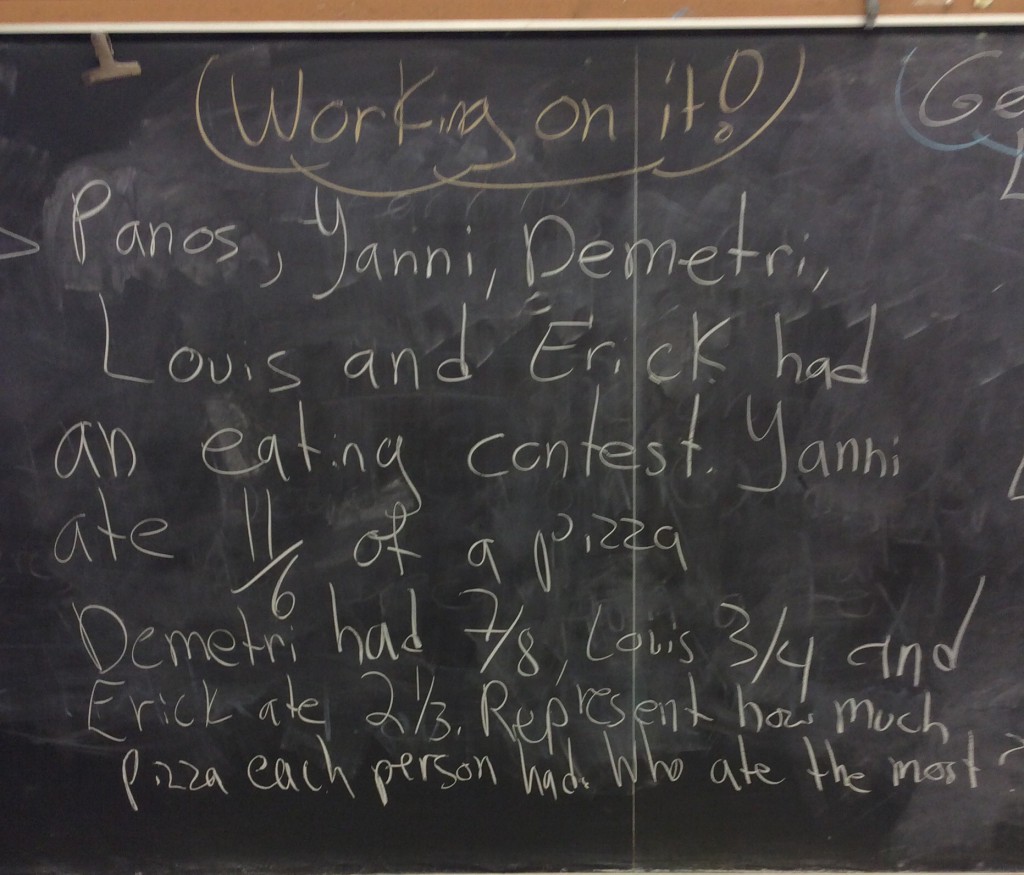 Working on it!
Ge
Panos, Yanni, Demetri,
Louis and Erick had
an eating contest. Yanni
ate 11/6 of a pizza
Demetri had 7/8, Louis 3/4 and
Erick ate 2 1/3. Represent how much
pizza each person had. Who ate the most?